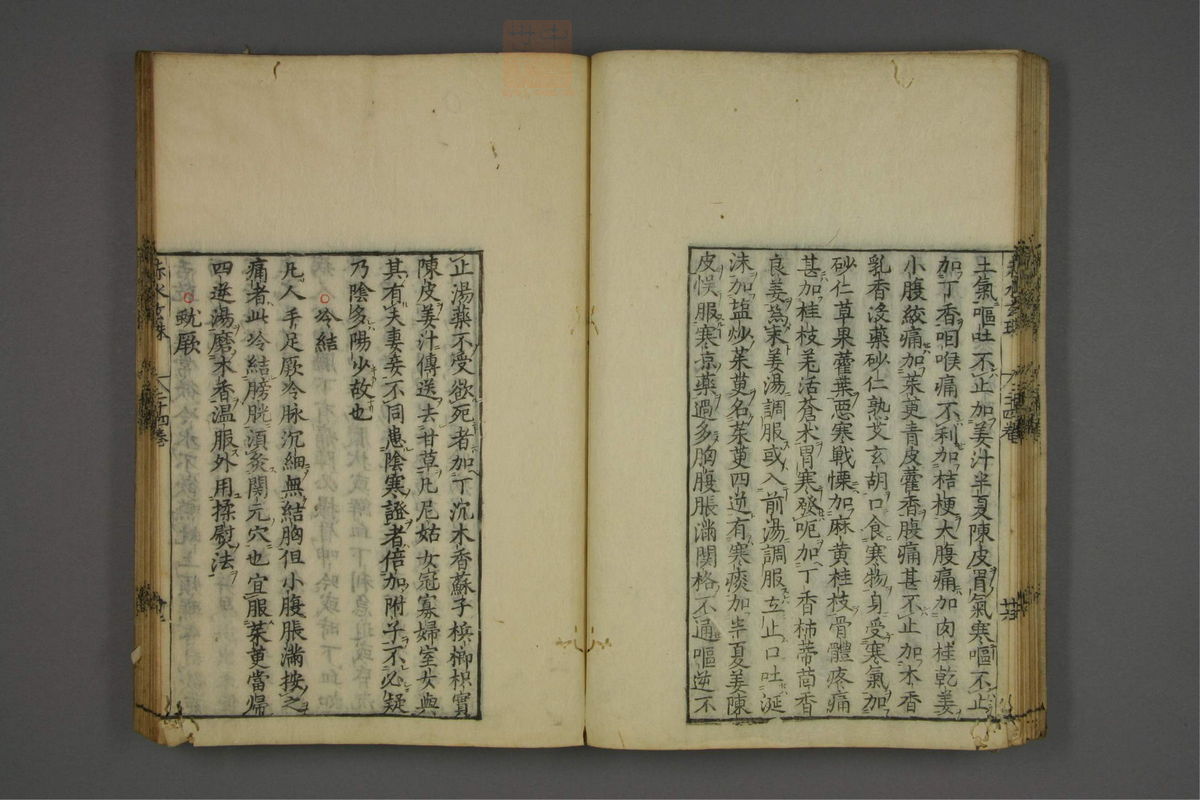 土氣嘔吐不止加姜汁半夏陳皮胃氣寒嘔不止
加丁香咽喉痛不利加桔梗大腹痛加肉桂乾姜
小腹絞痛加茱萸青皮藿香腹痛甚不止加木香
乳香沒藥砂仁熟艾玄胡口食寒物身受寒氣加
砂仁草果藿葉惡寒戦慄加麻黄桂枝骨體疼痛
甚加桂枝羌活蒼朮胃寒發呃加丁香柿蒂茴香
良姜為末姜湯調服或入前湯調服立止口吐涎
沫加塩炒茱萸名茱萸四逆有寒痰加半夏姜陳
皮悮服寒凉藥過多胸腹脹滿関格不通嘔逆不
止湯藥不受欲死者加丁沉木香蘇子檳榔枳實
陳皮姜汁傳送去甘草凡尼姑女冠寡婦室女與
其有夫妻妾不同患陰寒證者倍加附子不必疑
乃陰多陽少故也
○冷結
凡人手足厥冷脉沉細無結胸但小腹脹滿按之
痛者此冷結膀胱湏灸関元穴也宜服茱萸當歸
四逆湯磨木香温服外用揉熨法
○虵厥
赤水玄珠 二十四卷